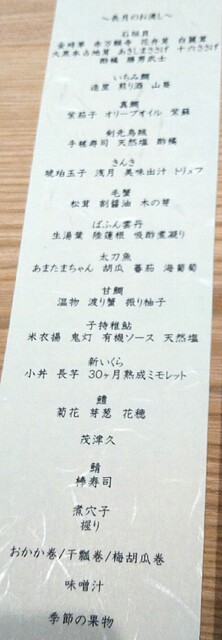 〜長月のお浸し〜
石垣貝
金時草 赤万願寺 花弁茸 白舞茸
大黒本占地茸 あきしまささげ 十六ささげ
酢橘 勝男武士
いちみ鯛
造里 煎り酒 山葵
真鯛
紫茄子 オリーブオイル 紫蘇
剣先烏賊
手毬寿司 天然塩 酢橘
きんき
琥珀玉子 浅月 美味出汁 トリュフ
毛蟹
松茸 割醤油 木の芽
ばふん雲丹
生湯葉 陸蓮根 吸酢煮凝り
太刀魚
あまたまちゃん 胡瓜 蕃茄 海葡萄
甘鯛
温物 渡り蟹 振り柚子
子持稚鮎
米衣揚 鬼灯 有機ソース 天然塩
新いくら
小丼 長芋 30ヶ月熟成ミモレット
鱧
菊花 芽葱 花穂
茂津久
鯖
棒寿司
煮穴子
握り
おかか巻/干瓢巻/梅胡瓜巻
味噌汁
季節の果物